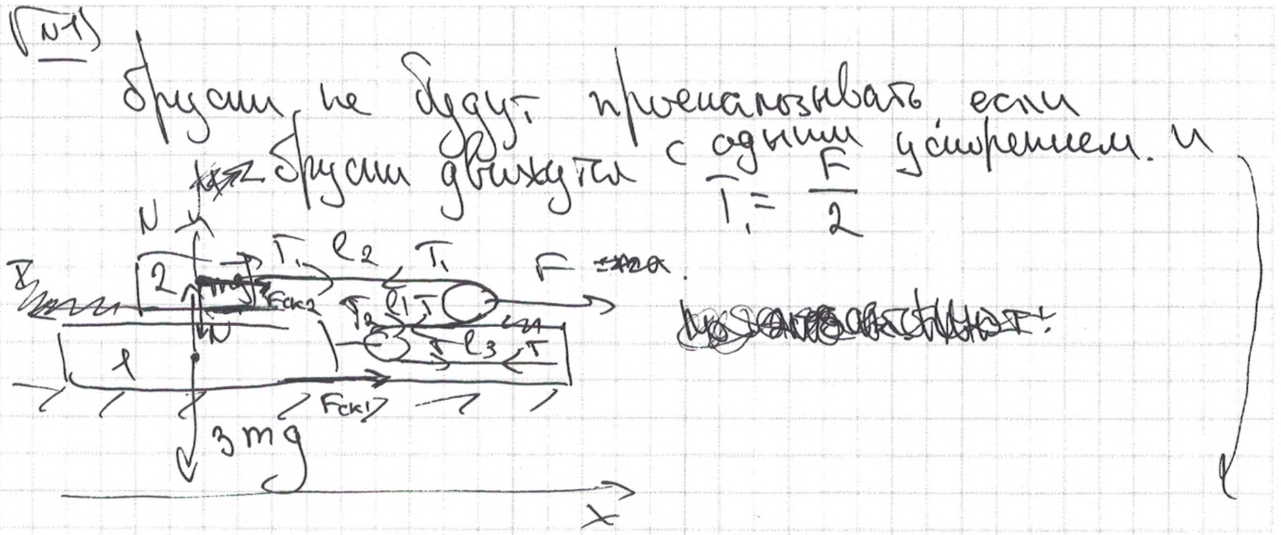 N1
бруски не будут проскальзывать если
бруски движутся с одним ускорением. и
T₁ = F/2
N T₁ l₂ T₁ F
2 mg Fск2 T₂ l₁ T
N T l₃ T
1
Fск1
3mg
x